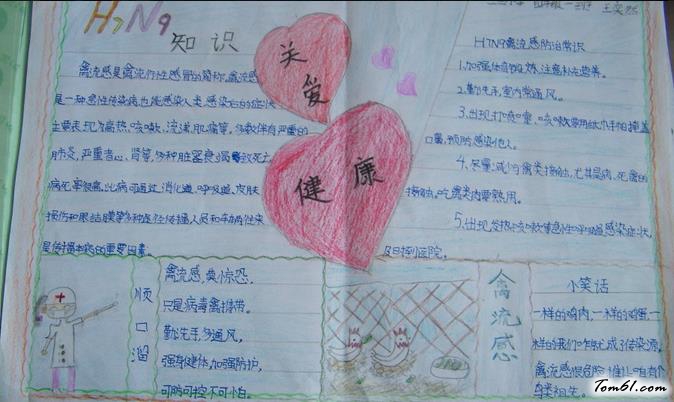 H7N9
知识
关爱
健康
禽流感是禽流行性感冒的简称,禽流感
是一种急性传染病,也能感染人类,感染后的症状
主要表现为高热、咳嗽、流涕、肌痛等,多数伴有严重的
肺炎,严重者心、肾等多种脏器衰竭导致死亡,
病死率很高,此病可通过消化道、呼吸道、皮肤
损伤和眼结膜等多种途径传播,人员和车辆往来
是传播本病的重要因素。
H7N9禽流感防治常识
1.加强体育锻炼,注意补充营养。
2.勤洗手,室内常通风。
3.出现打喷嚏、咳嗽等用纸巾手帕掩盖
口鼻,预防感染他人。
4.尽量减少与禽类接触,尤其是病、死禽的
接触。吃禽类肉要熟用。
5.出现发热、咳嗽等急性呼吸道感染症状,
及时到医院。
顺口溜
禽流感,莫惊恐,
只是病毒禽携带。
勤洗手,多通风,
强身健体,加强防护,
可防可控不可怕。
禽流感
小笑话
一样的鸡肉,一样的鸡蛋,一
样的我们咋就成了传染源,
禽流感很危险,谁让咱有个
鸟类祖先。
Tom61.com